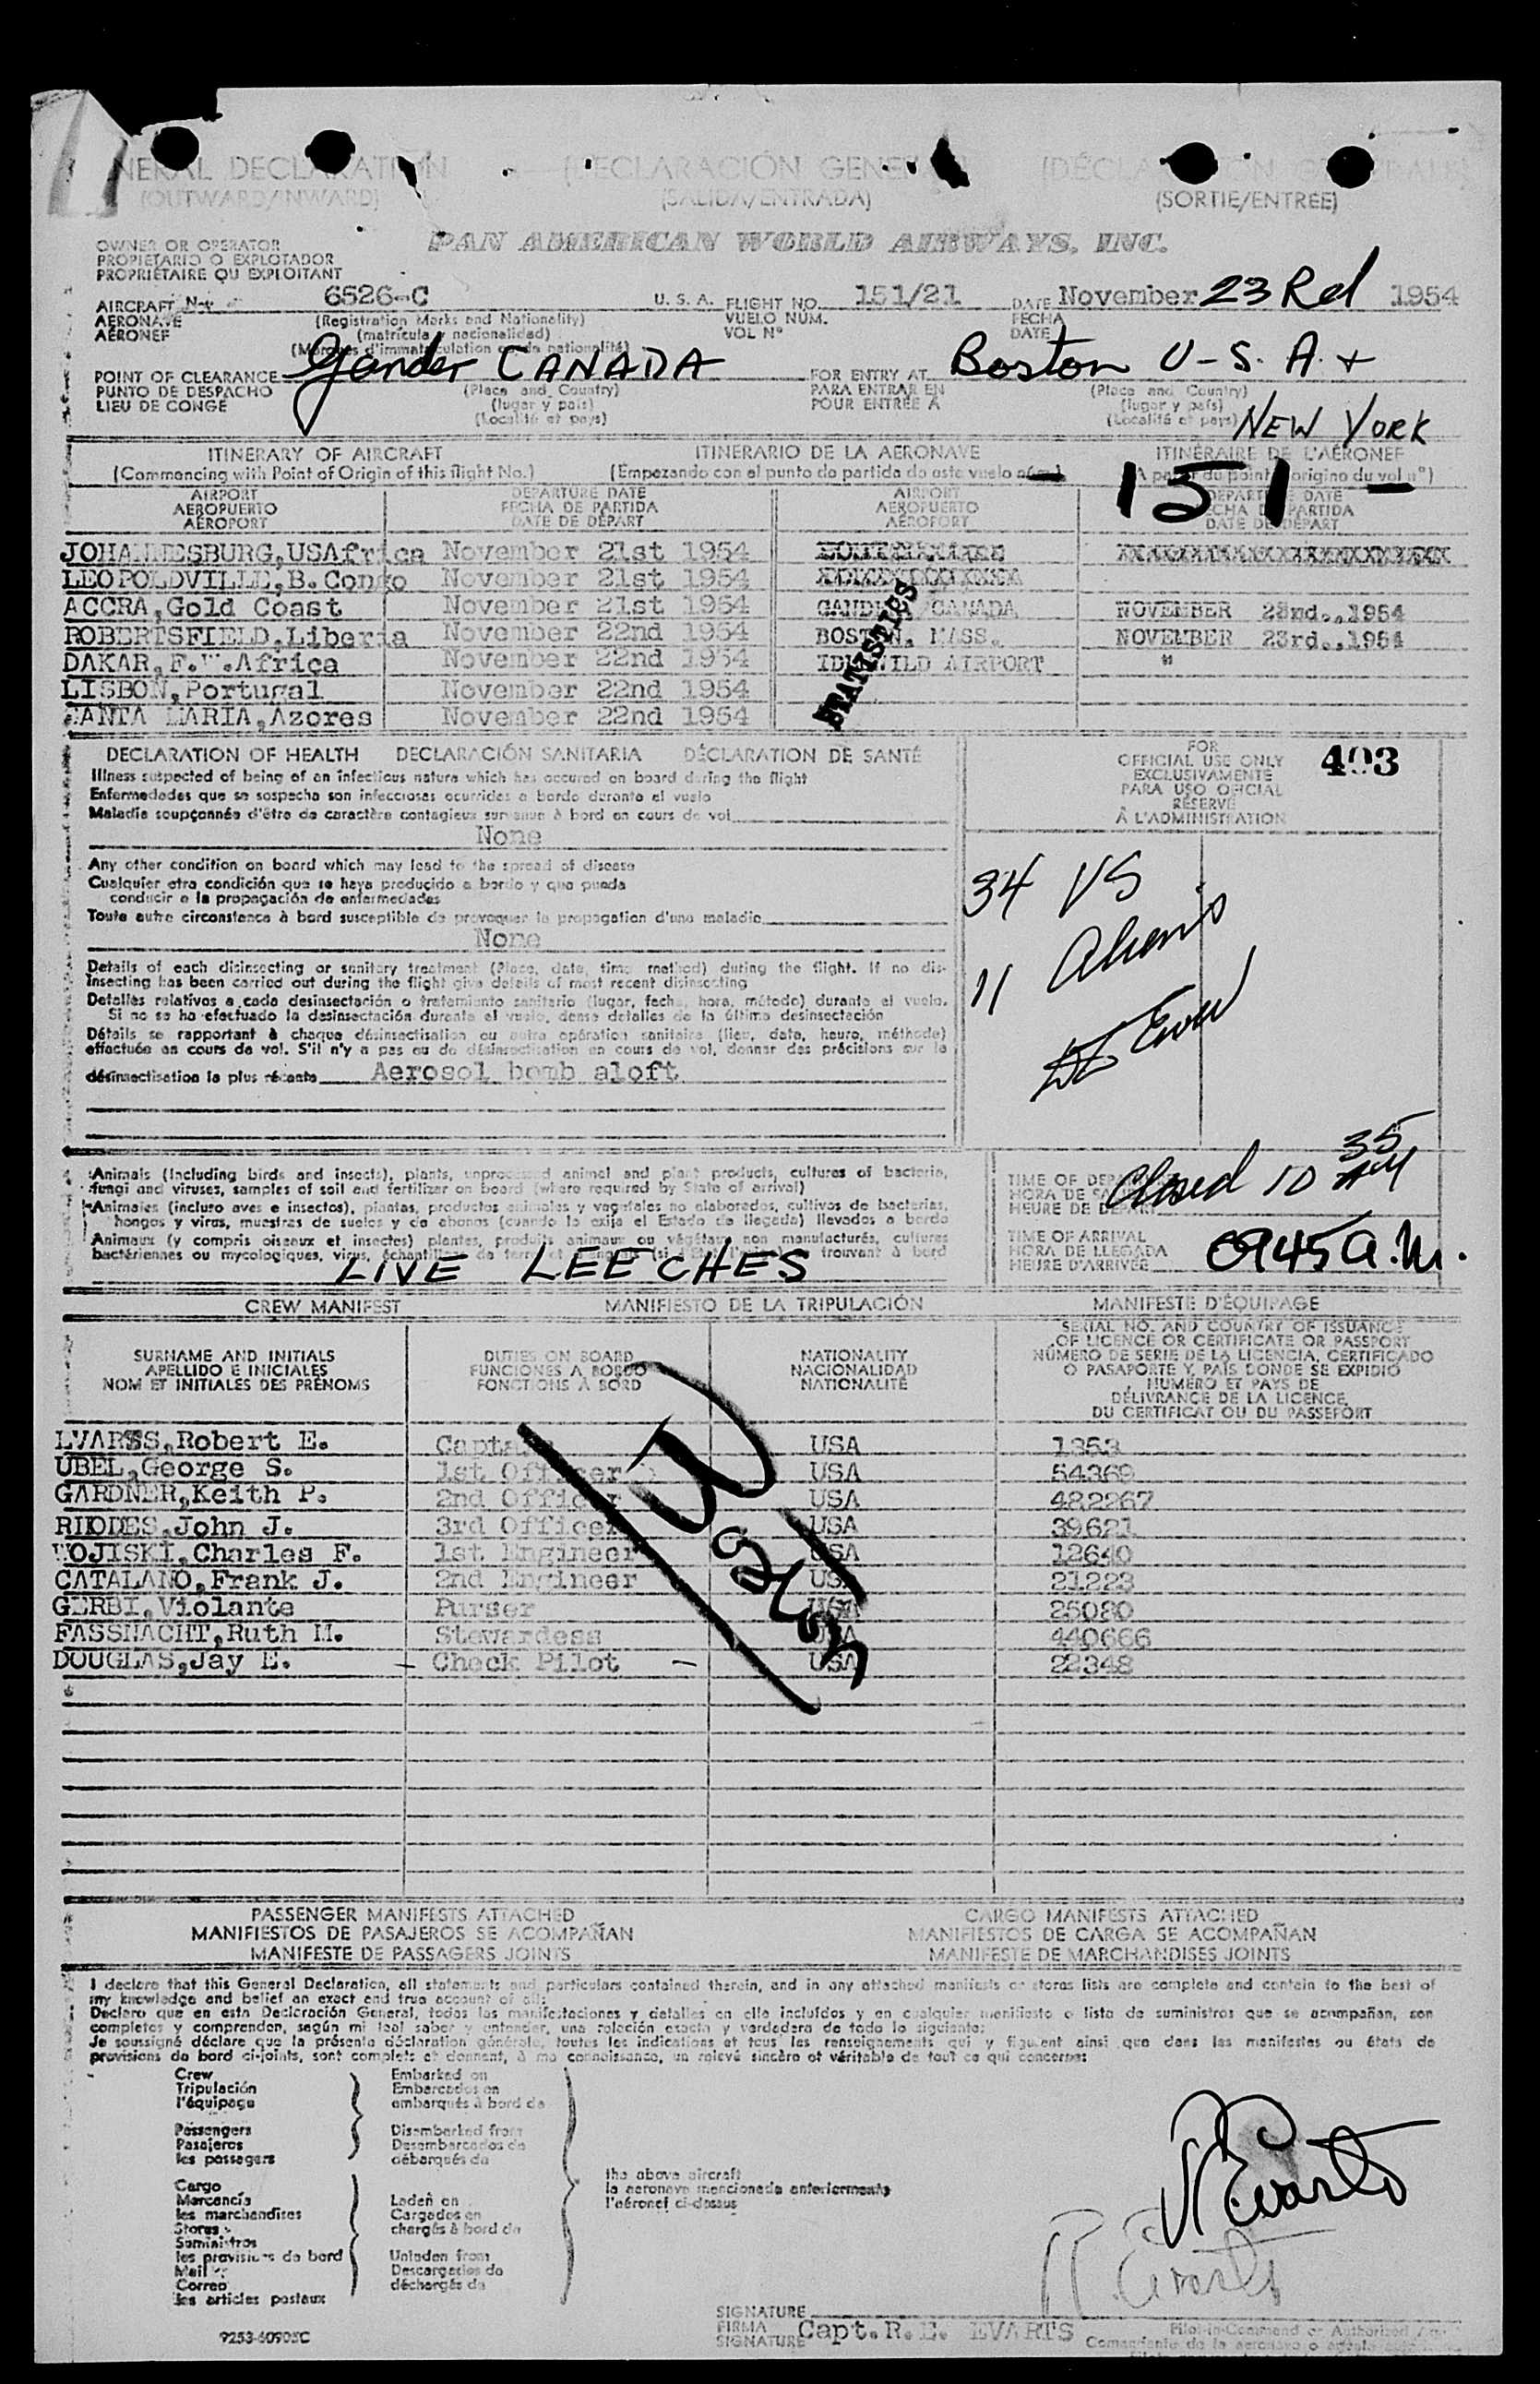 GENERAL DECLARATION (DECLARACIÓN GENERAL) (DÉCLARATION GÉNÉRALE)
(OUTWARD/INWARD) (SALIDA/ENTRADA) (SORTIE/ENTRÉE)
OWNER OR OPERATOR
PROPIETARIO O EXPLOTADOR
PROPRIÉTAIRE OU EXPLOITANT
PAN AMERICAN WORLD AIRWAYS, INC.
AIRCRAFT N- 6526-C U. S. A. FLIGHT NO. 151/21 DATE November 23Rd 1954
AERONAVE (Registration Marks and Nationality) VUELO NÚM. FECHA
AÉRONEF (matrícula y nacionalidad) VOL Nº DATE
(Marques d'immatriculation et de nationalité)
POINT OF CLEARANCE Gander CANADA FOR ENTRY AT Boston U-S. A. +
PUNTO DE DESPACHO (Place and Country) PARA ENTRAR EN (Place and Country)
LIEU DE CONGÉ (lugar y país) POUR ENTRÉE À (lugar y país)
(Localité et pays) (Localité et pays) NEW YORK
ITINERARY OF AIRCRAFT ITINERARIO DE LA AERONAVE ITINÉRAIRE DE L'AÉRONEF
(Commencing with Point of Origin of this flight No.) (Empezando con el punto de partida de este vuelo núm.) (A partir du point d'origine du vol nº)
- 151 -
AIRPORT DEPARTURE DATE AIRPORT DEPARTURE DATE
AEROPUERTO FECHA DE PARTIDA AEROPUERTO FECHA DE PARTIDA
AÉROPORT DATE DE DÉPART AÉROPORT DATE DE DÉPART
JOHANNESBURG,USAfrica November 21st 1954
LEOPOLDVILLE,B.Congo November 21st 1954
ACCRA,Gold Coast November 21st 1954 GANDER, CANADA NOVEMBER 23nd.,1954
ROBERTSFIELD,Liberia November 22nd 1954 BOSTON, MASS. NOVEMBER 23rd.,1954
DAKAR,F.W.Africa November 22nd 1954 IDLEWILD AIRPORT "
LISBON,Portugal November 22nd 1954
SANTA MARIA,Azores November 22nd 1954
STATISTICS
DECLARATION OF HEALTH DECLARACIÓN SANITARIA DÉCLARATION DE SANTÉ
Illness suspected of being of an infectious nature which has occured on board during the flight
Enfermedades que se sospecha son infecciosas ocurrides a bordo durante el vuelo
Maladie soupçonnée d'être de caractère contagieux survenue à bord en cours de vol
None
Any other condition on board which may lead to the spread of disease
Cualquier otra condición que se haya producido a bordo y que pueda
conducir a la propagación de enfermedades
Toute autre circonstance à bord susceptible de provoquer la propagation d'une maladie
None
Details of each disinsecting or sanitary treatment (Place, date, time method) during the flight. If no dis-
insecting has been carried out during the flight give details of most recent disinsecting
Detalles relativos a cada desinsectación o tratamiento sanitario (lugar, fecha, hora, método) durante el vuelo.
Si no se ha efectuado la desinsectación durante el vuelo, dense detalles de la última desinsectación
Détails se rapportant à chaque désinsectisation ou autre opération sanitaire (lieu, date, heure, méthode)
effectuée en cours de vol. S'il n'y a pas eu de désinsectisation en cours de vol, donner des précisions sur la
désinsectisation la plus récente Aerosol bomb aloft
FOR
OFFICIAL USE ONLY 403
EXCLUSIVAMENTE
PARA USO OFICIAL
RÉSERVÉ
À L'ADMINISTRATION
34 US
11 Aliens
Animals (including birds and insects), plants, unprocessed animal and plant products, cultures of bacteria,
fungi and viruses, samples of soil and fertilizer on board (where required by State of arrival)
Animales (incluso aves e insectos), plantas, productos animales y vegetales no elaborados, cultivos de bacterias,
hongos y virus, muestras de suelos y de abonos (cuando lo exija el Estado de llegada) llevados a bordo
Animaux (y compris oiseaux et insectes) plantes, produits animaux ou végétaux non manufacturés, cultures
bactériennes ou mycologiques, virus, échantillons de terre et d'engrais (si l'État l'exige) se trouvant à bord
LIVE LEECHES
TIME OF DEPARTURE
HORA DE SALIDA Closed 10 35 AM
HEURE DE DÉPART
TIME OF ARRIVAL
HORA DE LLEGADA 0945 a.m.
HEURE D'ARRIVÉE
CREW MANIFEST MANIFIESTO DE LA TRIPULACIÓN MANIFESTE D'ÉQUIPAGE
SURNAME AND INITIALS DUTIES ON BOARD NATIONALITY SERIAL NO. AND COUNTRY OF ISSUANCE
APELLIDO E INICIALES FUNCIONES A BORDO NACIONALIDAD OF LICENCE OR CERTIFICATE OR PASSPORT
NOM ET INITIALES DES PRÉNOMS FONCTIONS À BORD NATIONALITÉ NÚMERO DE SERIE DE LA LICENCIA, CERTIFICADO
O PASAPORTE Y PAÍS DONDE SE EXPIDIÓ
NUMÉRO ET PAYS DE
DÉLIVRANCE DE LA LICENCE,
DU CERTIFICAT OU DU PASSEPORT
EVARTS,Robert E. Captain USA 1353
UBEL,George S. 1st Officer USA 54369
GARDNER,Keith P. 2nd Officer USA 482267
RHODES,John J. 3rd Officer USA 39621
WOJISKI,Charles F. 1st Engineer USA 12640
CATALANO,Frank J. 2nd Engineer USA 21223
GERBI,Violante Purser USA 25020
FASSNACHT,Ruth M. Stewardess USA 440666
DOUGLAS,Jay E. - Check Pilot - USA 22348
PASSENGER MANIFESTS ATTACHED CARGO MANIFESTS ATTACHED
MANIFIESTOS DE PASAJEROS SE ACOMPAÑAN MANIFIESTOS DE CARGA SE ACOMPAÑAN
MANIFESTE DE PASSAGERS JOINTS MANIFESTE DE MARCHANDISES JOINTS
I declare that this General Declaration, all statements and particulars contained therein, and in any attached manifests or stores lists are complete and contain to the best of
my knowledge and belief an exact and true account of all:
Declaro que en esta Declaración General, todas las manifestaciones y detalles en ella incluídos y en cualquier manifiesto o lista de suministros que se acompañan, son
completos y comprenden, según mi leal saber y entender, una relación exacta y verdadera de todo lo siguiente:
Je soussigné déclare que la présente déclaration générale, toutes les indications et tous les renseignements qui y figurent ainsi que dans les manifestes ou états de
provisions de bord ci-joints, sont complets et donnent, à ma connaissance, un relevé sincère et véritable de tout ce qui concerne:
Crew Embarked on
Tripulación Embarcados en
l'équipage embarqués à bord de
Passengers Disembarked from
Pasajeros Desembarcados de
les passagers débarqués du
the above aircraft
la aeronave mencionada anteriormente
l'aéronef ci-dessus
Cargo
Mercancía Laden on
les marchandises Cargados en
Stores chargés à bord de
Suministros
les provisions de bord Unladen from
Mail Descargados de
Correo déchargés de
les articles postaux
R Evarts
R. Evarts
SIGNATURE
FIRMA Capt. R. E. EVARTS Pilot-in-Command or Authorized
SIGNATURE Comandante de la aeronave o agente
9253-60905C